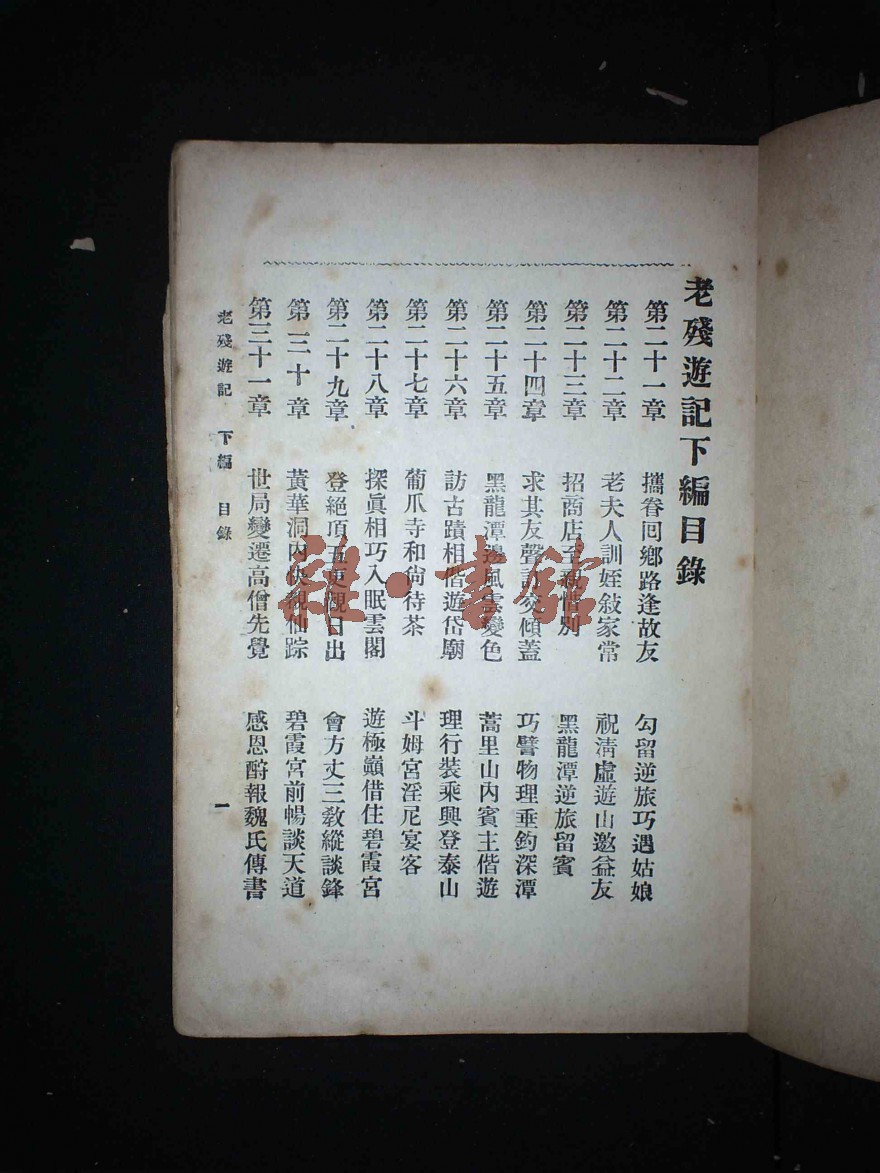 老殘遊記下編目錄
第二十一章 攜眷回鄉路逢故友 勾留逆旅巧遇姑娘
第二十二章 老夫人訓姪敍家常 祝清虛遊山邀益友
第二十三章 招商店至親惜別 黑龍潭逆旅留賓
第二十四章 求其友聲訂交傾蓋 巧譬物理垂鈞深潭
第二十五章 黑龍潭邊風雲變色 蒿里山內賓主偕遊
第二十六章 訪古蹟相偕遊岱廟 理行裝乘興登泰山
第二十七章 葡爪寺和尙待茶 斗姆宮淫尼宴客
第二十八章 探眞相巧入眠雲閣 遊極巔借住碧霞宮
第二十九章 登絕項五更觀日出 會方丈三敎縱談鋒
第三十章 黃華洞內快覩仙踪 碧霞宮前暢談天道
第三十一章 世局變遷高僧先覺 感恩酧報魏氏傳書
老殘遊記 下編 目錄 一
雜·書館